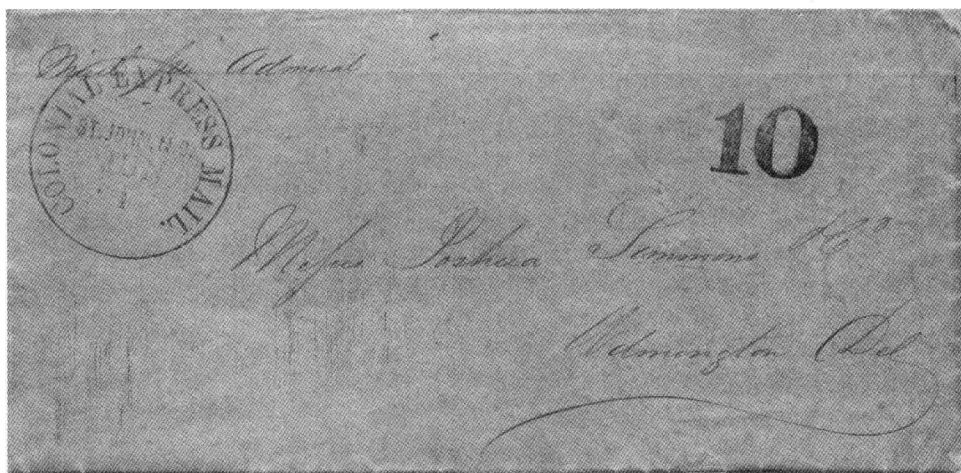 Admiral
COLONIAL EXPRESS MAIL
ST. JOHN, N.B.
10
Messrs Joshua Simmons & Co
Wilmington Del